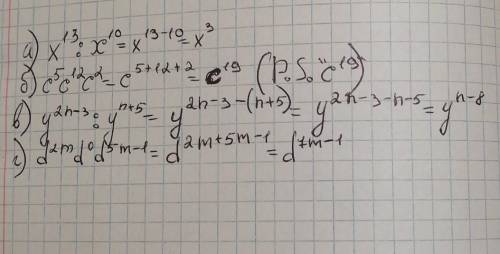 а) x¹³ : x¹⁰ = x¹³⁻¹⁰ = x³
б) c⁵c¹²c² = c⁵⁺¹²⁺² = c¹⁹ (P.S. "c¹⁹)
в) y²ⁿ⁻³ : yⁿ⁺⁵ = y²ⁿ⁻³⁻⁽ⁿ⁺⁵⁾ = y²ⁿ⁻³⁻ⁿ⁻⁵ = yⁿ⁻⁸
г) d²ᵐd⁰d⁵ᵐ⁻¹ = d²ᵐ⁺⁵ᵐ⁻¹ = d⁷ᵐ⁻¹